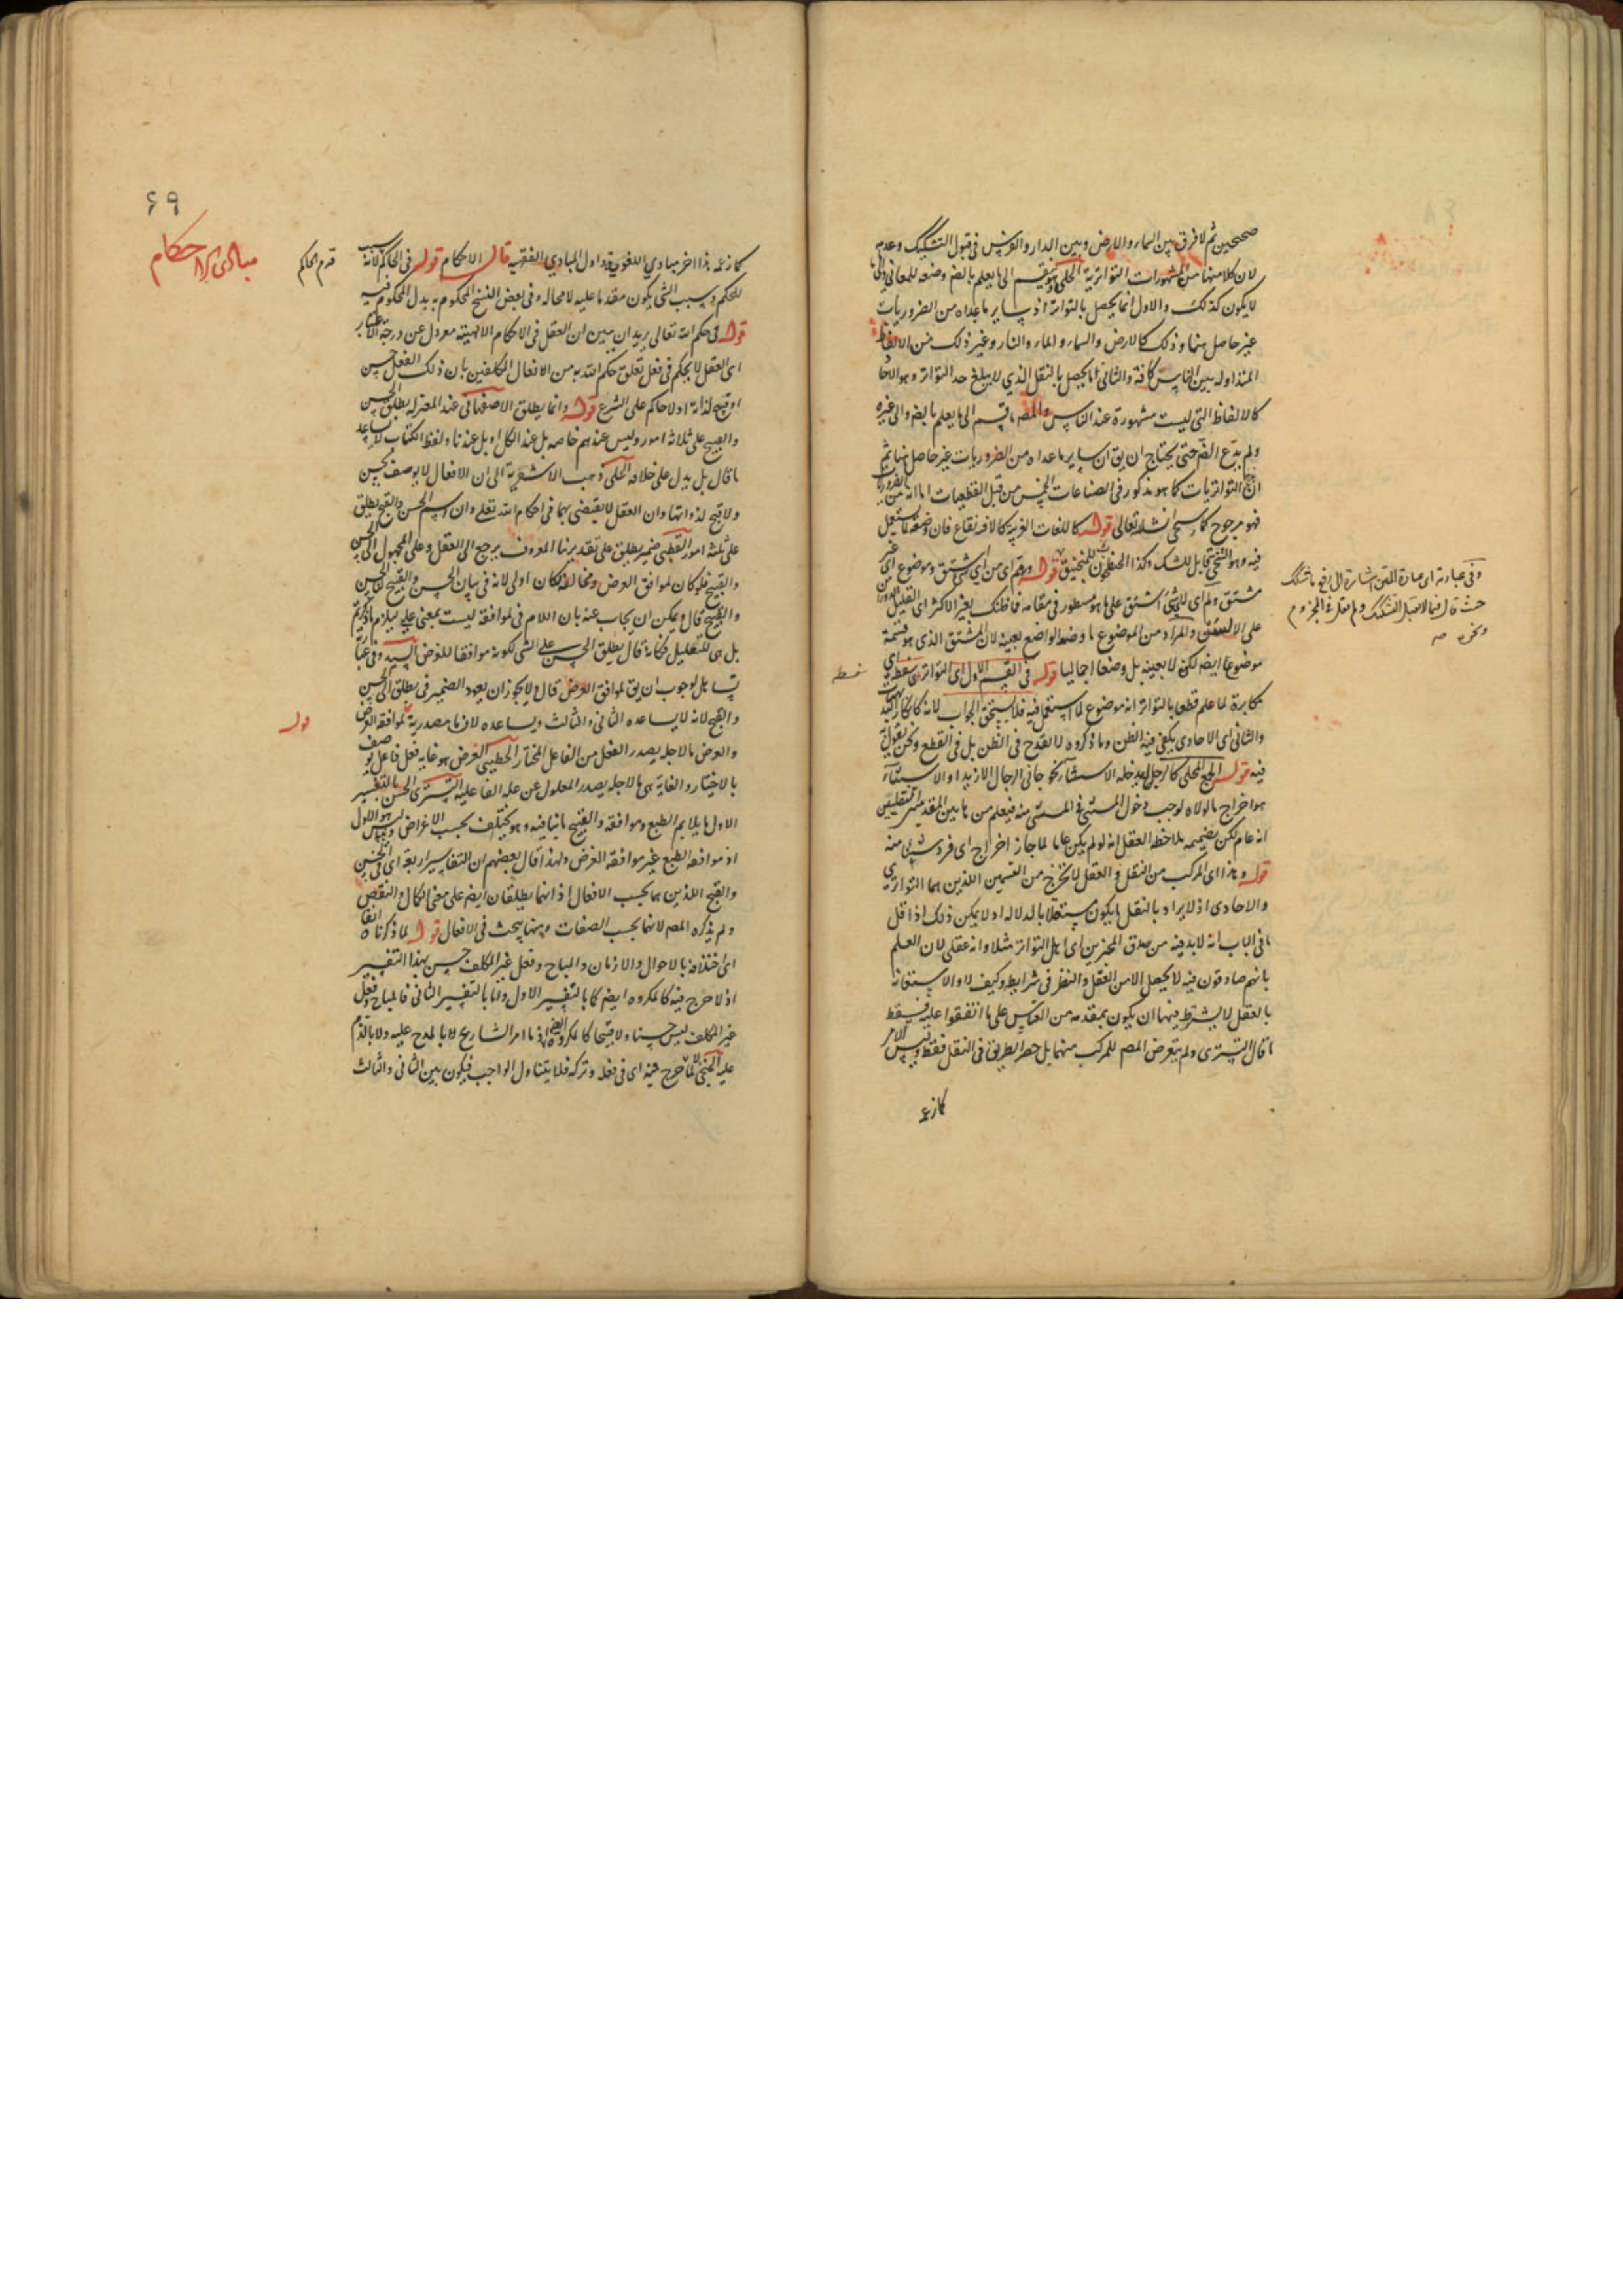 صحيحين ثم لا فرق بين السماء والارض وبين الدار والفرس في قبول التشكيك وعدمه
لان كلا منها من المشهورات التواترية الحلى هو ينقسم الى ما يعلم بالضم وضعه للمعاني والى ما
لا يكون كذلك والاول انما يحصل بالتواتر اذ ساير ما عداه من الضروريات
غير حاصل منها وذلك كالارض والسماء والماء والنار وغير ذلك من الالفاظ
المتداوله بين الناس كافة والثاني انما يحصل بالنقل الذي لا يبلغ حد التواتر وهو الاحاد
كالالفاظ التي ليست مشهورة عند الناس والمصه ما قسم الى ما يعلم بالضم والى غيره
ولم يدع الضم حتى يحتاج ان يق ان ساير ما عداه من الضروريات غير حاصل منها ثم
ان التواتريات كما هو مذكور في الصناعات الخمس من قبل القطعيات اما انه من الضروريات
فهو مرجوح كما سيجئ انشاء الله تعالى قوله كاللغات الغريبة كالافرنقاع فان وضعه لما يستعمل
فيه وهو التنحى قابل للشك وكذا المنجنون للمنجنيق قوله ورقم اى من اي شئ اشتق وموضوع اى غير
مشتق ولم اى لاي شئ اشتق على ما هو مسطور في مقامه فما ظنك بغير الاكثر اى القليل الدوران
على الالسنة والمراد من الموضوع ما وضعه الواضع بعينه لان المشتق الذي هو قسمه
موضوع ايضه لكن لا بعينه بل وضعا اجماليا قوله في القسم الاول اى التواتر سفسطة اى
مكابرة لما علم قطعا بالتواتر انه موضوع لما استعمل فيه فلا يستحق الجواب لانه كانكار البديهيات
والثاني اى الاحادى يكفى فيه الظن وما ذكروه لا يقدح في الظن بل في القطع ونحن نقول به
فيه قوله الجمع المحلى كالرجل يدخله الاستثناء نحو جاني الرجال الا زيدا والاستثناء
هو اخراج ما لولاه لوجب دخول المستثنى في المستثنى منه فيعلم من هاتين المقدمتين النقليتين
انه عام لكن بضميمه ملاحظه العقل انه لو لم يكن عاما لما جاز اخراج اى فرد شئ منه
قوله وهذا اى المركب من النقل والعقل لا يخرج من القسمين اللذين هما التواترى
والاحادى اذ لا يراد بالنقل ما يكون مستقلا بالدلاله اذ لا يمكن ذلك اذ اقل
ما في الباب انه لا بد فيه من صدق المخبرين اى اهل التواتر مثلا وانه عقلى لان العلم
بانهم صادقون فيه لا يحصل الا من العقل والنظر في شرايطه وكيف لا والاستعانة
بالعقل لا يشترط فيها ان يكون بمقدمه من القياس على ما اتفقوا عليه فسقط
ما قال التسترى ولم يتعرض المصه للمركب منهما بل حصر الطريق في النقل فقط وليس الامر
كما زعمه
وفي عبارته اى عبارة المتن اشارة الى رفع ما شكك
حيث قال فيما لا يقبل التشكيك ولم يقل في الجزوم
ونحوه صه
سفسطه
٦٩
مبادى الاحكام
كما زعمه هذا اخر مبادي اللغوية واول المبادي الفقهيه قال الاحكام قوله في الحاكم لانه سبب
قدم الحاكم
للحكم وسبب الشئ يكون مقدما عليه لا محاله وفي بعض النسخ المحكوم به بدل المحكوم فيه
قوله في حكم الله تعالى يريد ان يبين ان العقل في الاحكام الالهيته معزول عن درجة الاعتبار
اى العقل لا يحكم في فعل تعلق حكم الله به من الافعال المكلفين بان ذلك الفعل حسن
او قبيح لذاته اذ لا حاكم على الشرع قوله وانما يطلق الاصفهانى عند المعتزله يطلق الحسن
والقبيح على ثلاثه امور وليس عندهم خاصه بل عند الكل او بل عندنا ولفظ الكتاب لا يساعد
ما قال بل يدل على خلافه الحلى ذهب الاشعرية الى ان الافعال لا يوصف بحسن
ولا قبح لذواتها وان العقل لا يقتضى بهما في احكام الله تعلى وان اسم الحسن والقبح يطلق
على ثلثه امور القطبى ضمير يطلق على تقدير بنا المعروف يرجع الى العقل وعلى المجهول الى الحسن
والقبيح فلو كان لموافق الغرض ومخالفه لكان اولى لانه في بيان الحسن والقبيح لا الحسن
والقبح قال ويمكن ان يجاب عنه بان اللام في لموافقه ليست بمعنى على ليلزم ما ذكرتم
بل هى للتعليل فكانه قال يطلق الحسن على الشئ لكونه موافقا للغرض السيد وفي عبارته
تساهل لوجوب ان يق لموافق الغرض قال ولا يجوز ان يعود الضمير في يطلق الى الحسن
والقبح لانه لا يساعده الثاني والثالث ويساعده لان ما مصدرية لموافقه الغرض
قوله
والغرض ما لاجله يصدر الفعل من الفاعل المختار الخطيبى الغرض هو غايه فعل فاعل يوصف
بالاختيار والغاية هى ما لاجله يصدر المعلول عن عله الفاعليه التسترى الحسن بالتفسير
الاول ما يلايم الطبع وموافقه والقبيح ما ينافيه وهو يختلف بحسب الاغراض وليس هو الاول
اذ موافقه الطبع غير موافقه الغرض ولهذا قال بعضهم ان التفاسير اربعة اى في الحسن
والقبح اللذين هما بحسب الافعال اذ انهما يطلقان ايضه على معنى الكمال والنقص
ولم يذكره المصه لانهما بحسب الصفات وهنا يبحث في الافعال قوله لما ذكرناه انفا
اى اختلافه بالاحوال والازمان والمباح وفعل غير المكلف حسن بهذا التفسير
اذ لا حرج فيه كالمكروه ايضه كما بالتفسير الاول واما بالتفسير الثاني فالمباح وفعل
غير المكلف ليس حسنا ولا قبيحا كالمكروه ايضه اذ ما امر الشارع لا بالمدح عليه ولا بالذم
عليه المنجى لا حرج فيه اى في فعله وتركه فلا يتناول الواجب فيكون بين الثاني والثالث